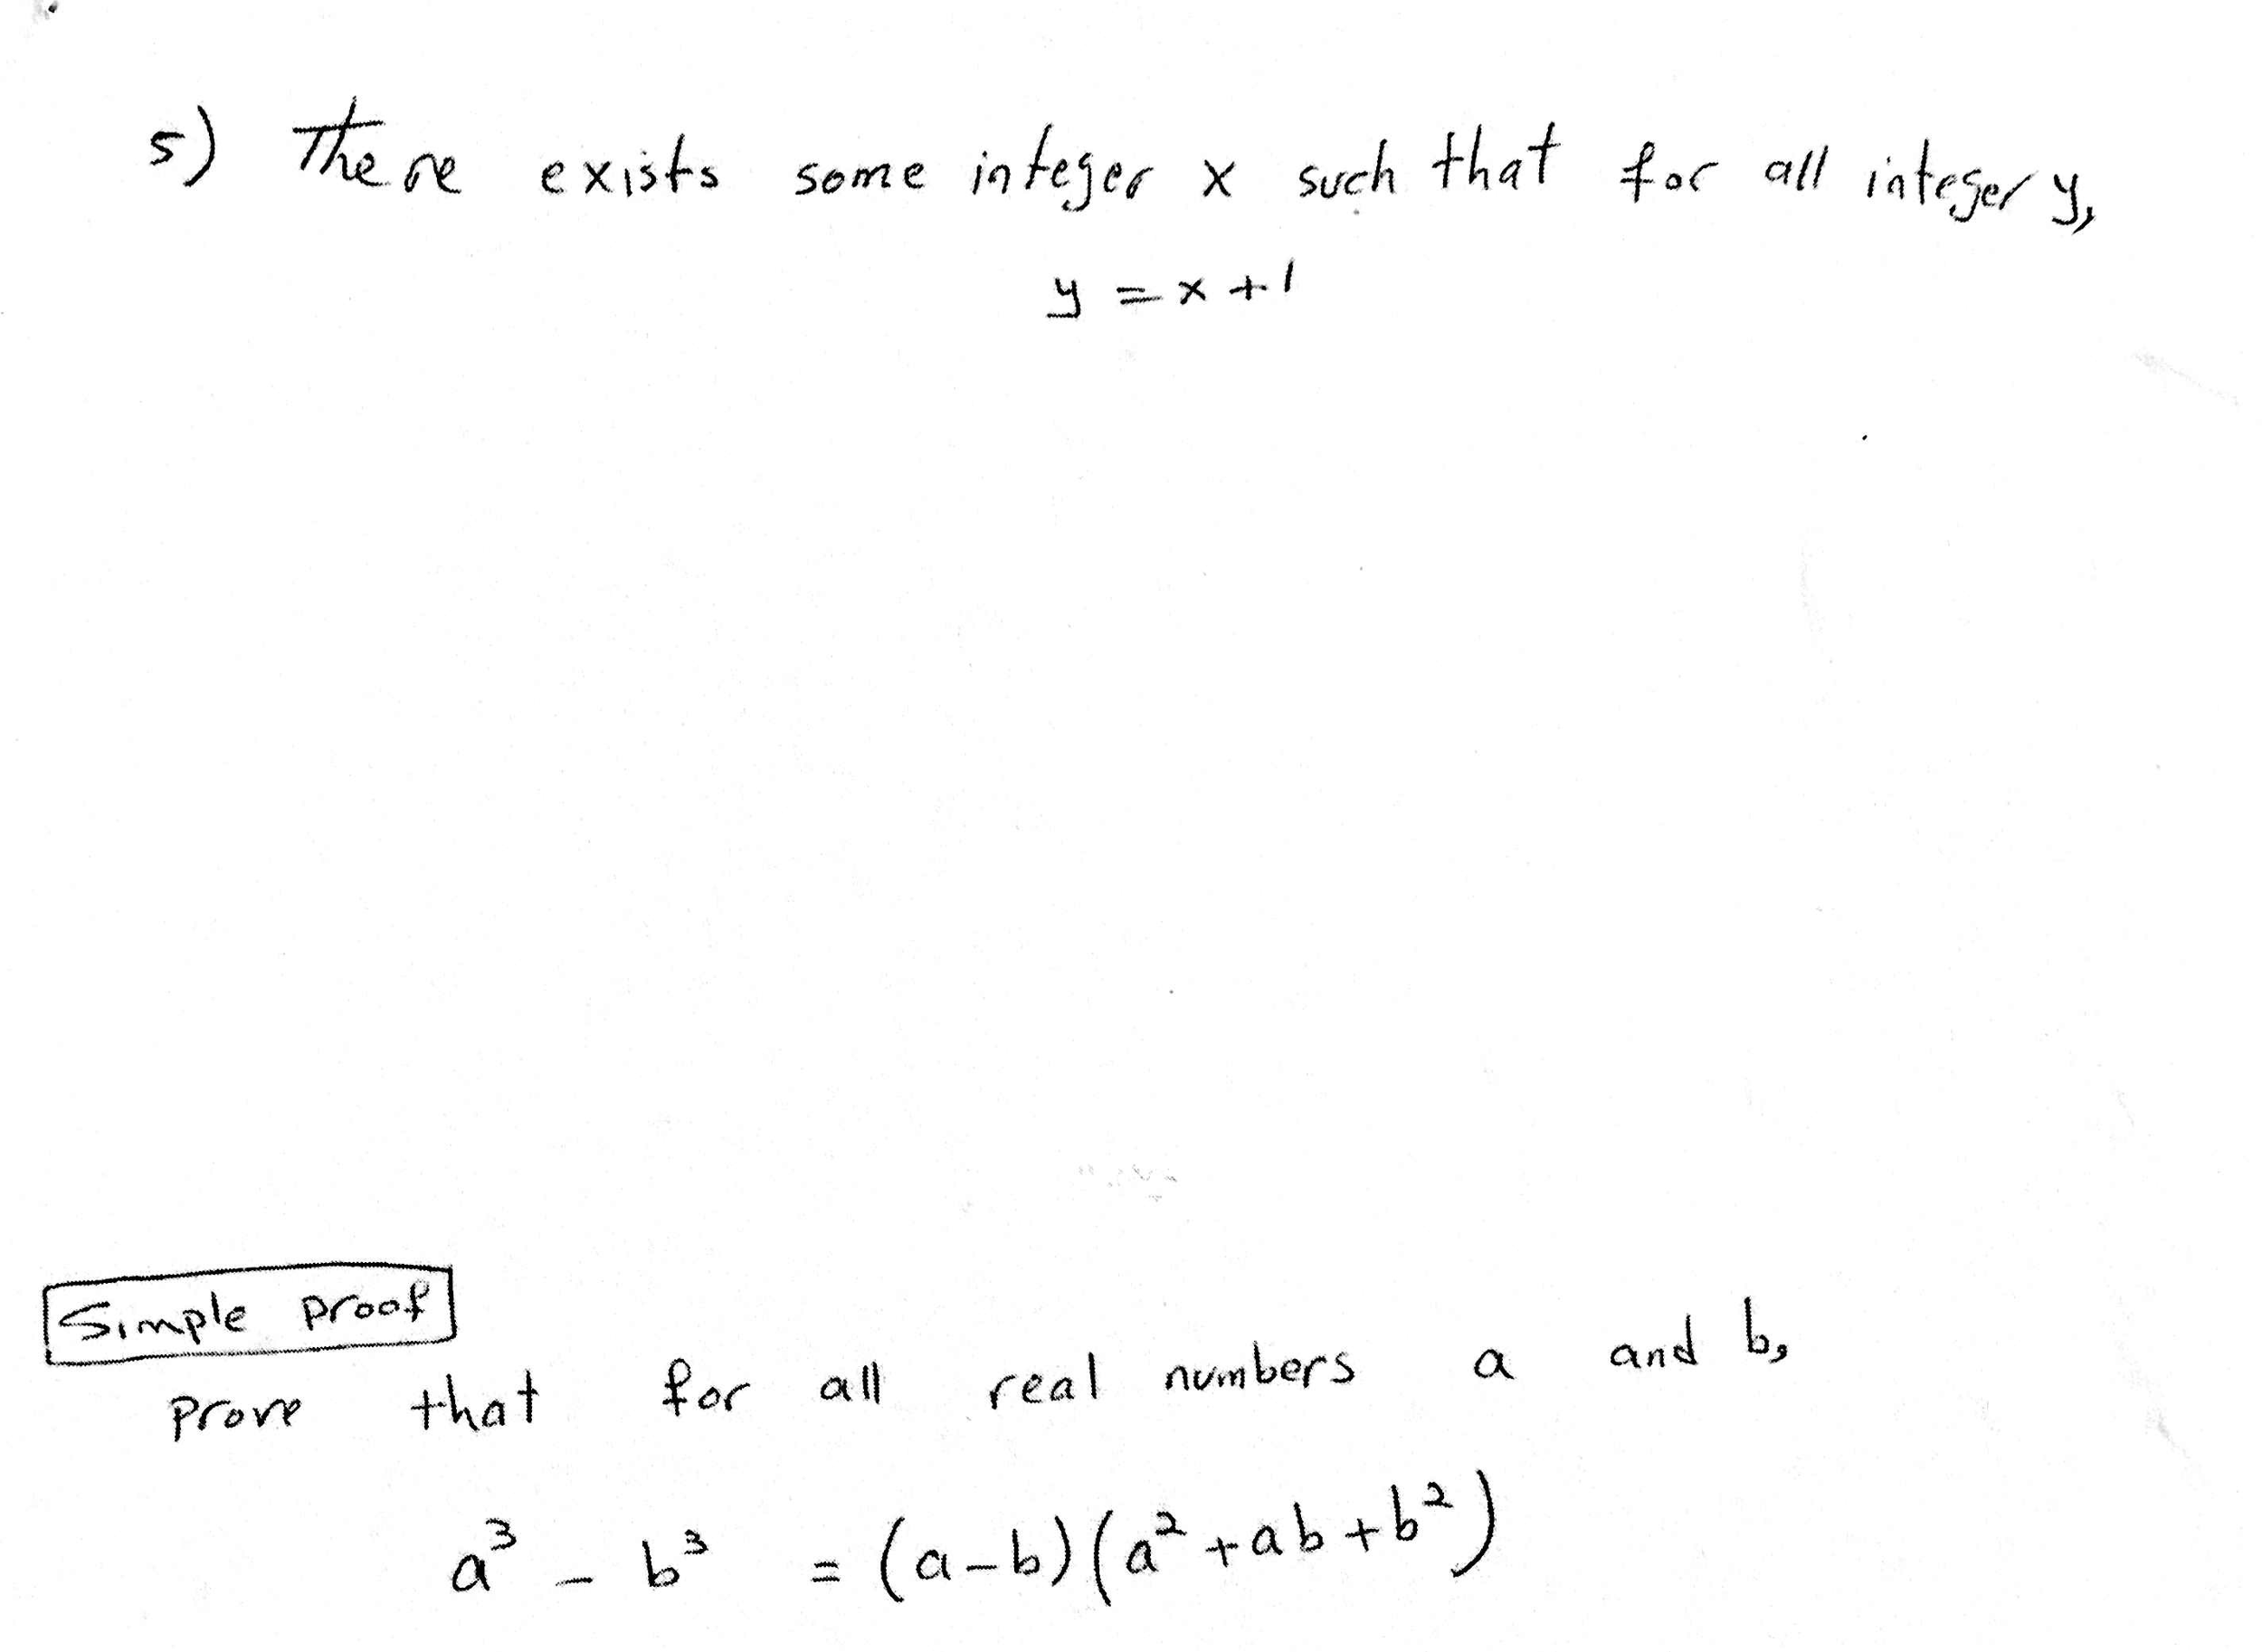 5) There exists some integer x such that for all integer y,
y = x + 1
Simple proof
prove that for all real numbers a and b,
a³ - b³ = (a-b)(a² + ab + b²)